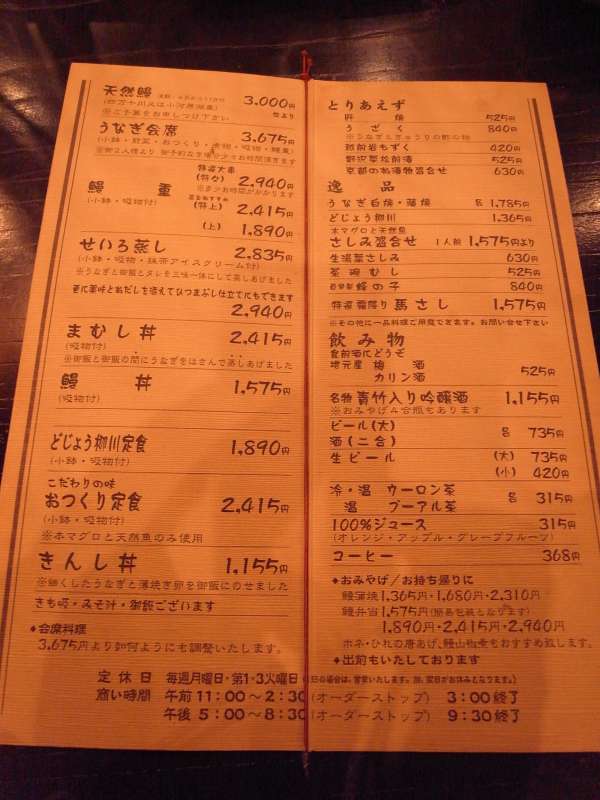 天然鰻
3,000円
(四万十川又は小河原湖産)
より
※ご予算をお申しつけ下さい
うなぎ会席
3,675円
(小鉢・野菜・おつくり・煮物・吸物・鰻重)
特選大串
(特々) 2,940円
※多少お時間がかかります
鰻重
(小鉢・吸物付)
(特上) 2,415円
(上) 1,890円
せいろ蒸し 2,835円
(小鉢・吸物・抹茶アイスクリーム付)
※うなぎと御飯とタレを三味一体にして蒸しあげました
更に薬味とお だしを添えてひつまぶし仕立てにもできます
2,940円
まむし丼 2,415円
(吸物付)
※御飯と御飯の間にうなぎをはさんで蒸しあげました
鰻丼 1,575円
(吸物付)
どじょう柳川定食 1,890円
(小鉢・吸物付)
こだわりの味
おつくり定食 2,415円
(小鉢・吸物付)
※本マグロと天然魚のみ使用
きんし丼 1,155円
※細くしたうなぎと薄焼き卵を御飯にのせました
きも吸・みそ汁・御飯ございます
♦会席料理
3,675円より如何ようにも調整いたします。
とりあえず
肝焼 525円
うざく 840円
※うなぎときゅうりの酢の物
越前岩もずく 420円
野沢菜松前漬 525円
京都のお漬物盛合せ 630円
逸品
うなぎ白焼・蒲焼 各 1,785円
どじょう柳川 1,365円
本マグロと天然魚
さしみ盛合せ 1人前 1,575円より
生湯葉さしみ 630円
茶碗むし 525円
蜂の子 840円
特選霜降り 馬さし 1,575円
※その他に一品料理ご用意できます。お問い合せ下さい
飲み物
食前酒にどうぞ
地元産 梅酒
カリン酒 525円
名物 青竹入り吟醸酒 1,155円
※おみやげ4合瓶もあります
ビール(大)
酒(二合) 各 735円
生ビール (大) 735円
(小) 420円
冷・温 ウーロン茶
温 プーアル茶 各 315円
100%ジュース 315円
(オレンジ・アップル・グレープフルーツ)
コーヒー 368円
♦おみやげ/お持ち帰りに
鰻蒲焼 1,365円・1,680円・2,310円
鰻弁当 1,575円(簡易包装となります)
1,890円・2,415円・2,940円
ホネ・ひれの唐あげ、鰻山椒煮もおすすめ致します。
♦出前もいたしております
定休日 毎週月曜日・第1・3火曜日(祝日の場合は、営業いたします。尚、翌日がお休みとなります。)
商い時間 午前11:00〜2:30(オーダーストップ) 3:00終了
午後5:00〜8:30(オーダーストップ) 9:30終了